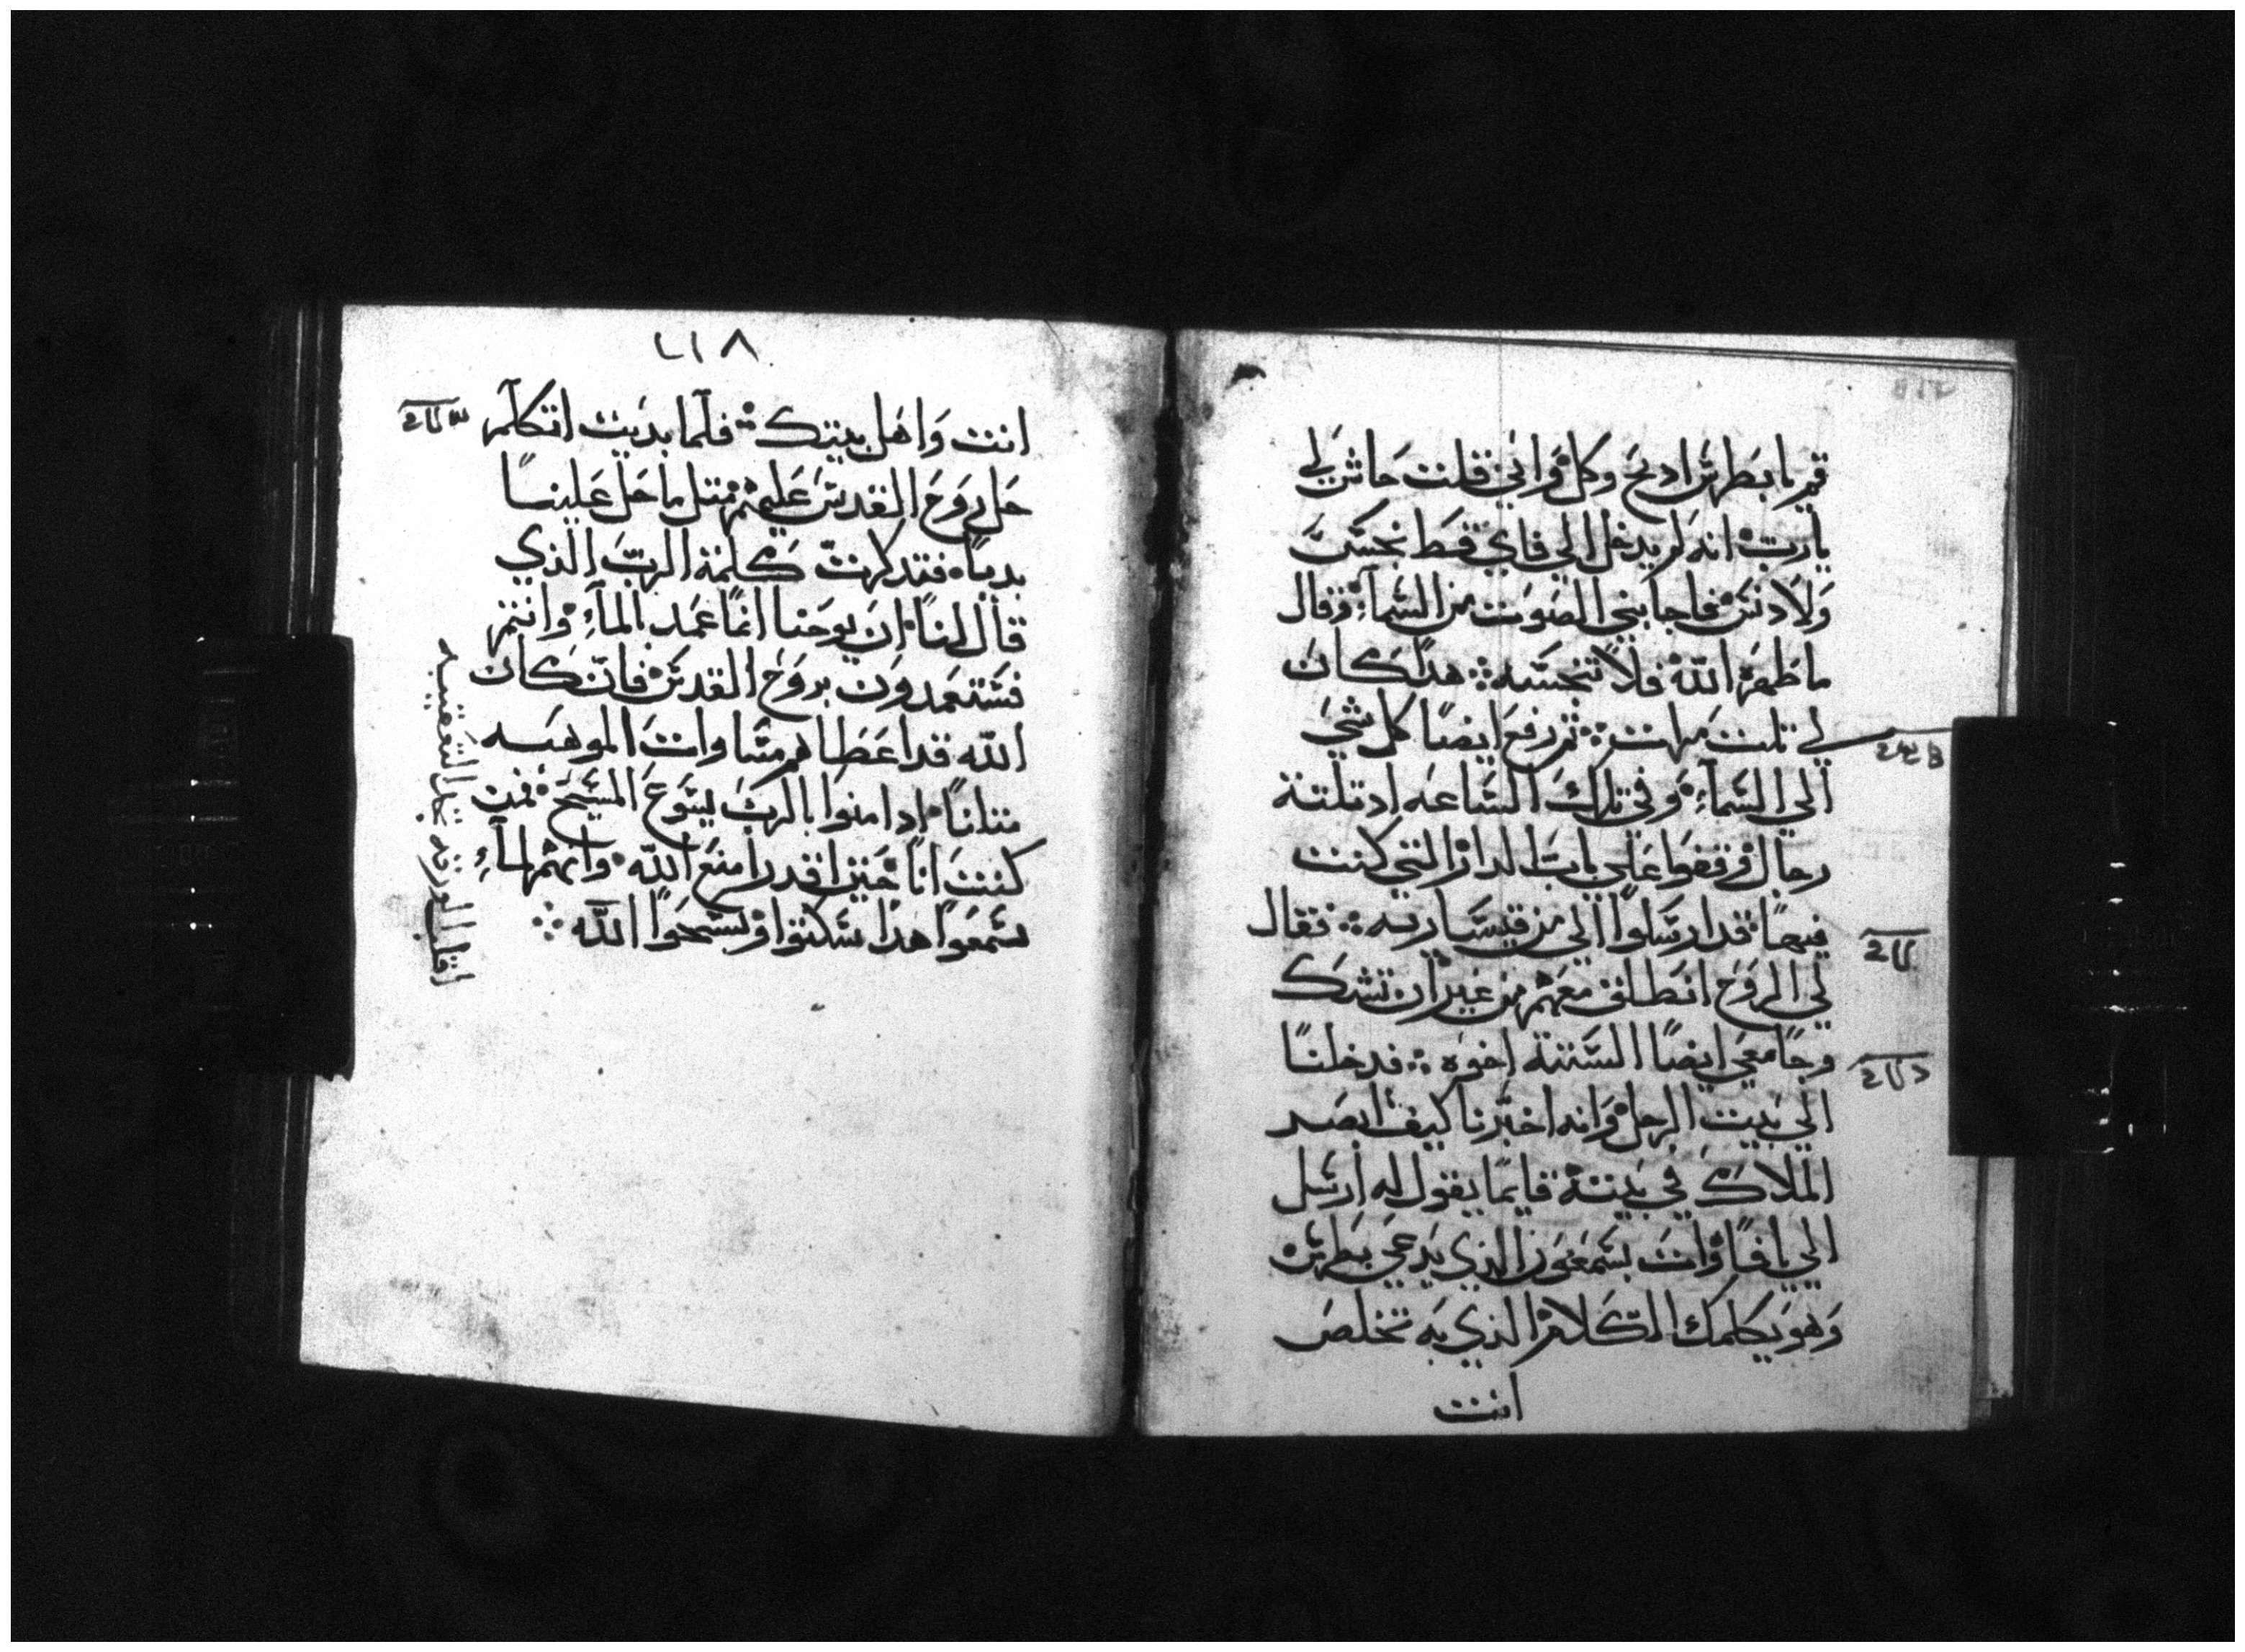 قم يا بطرس ادبح وكل وَاني قلت حَاش لي
يارب انه لم يدخل الي فاي قط نجسَ
وَلا دنس فاجابني الصَوت من السَماء وقال
ما طهره الله فلا تنجسَه هدا كان
لي تلت مرات ثم رفع ايضاً كل شي
الي السَماء وفي تلك السَاعه اد تلتة
رجال وقفوا عَلي باب الدار التي كنت
فيها قد ارسَلوا الي من قيسَاريه فقال
لي الروَح انطلق معَهم من غير ان تشك
وجا معي ايضاً السَتة اخوه فدخلنا
الي بيت الرجل وَانه اخبرنا كيف ابصر
الملاك في بيته قايماً يقول له ارسَل
الي يافا وَات بسَمعَون الذي يدعي بطرس
وَهو يكلمك الكلام الذي به تخلص
انت
٢١٨
انت وَاهل بيتك فلما بديت اتكلم
حَل روَح القدس عَليهم متل ما حَل عَلينا
بدياً فتدكرت كلمة الرب الذي
قال لنا ان يوحَنا انما عَمد الماء وانتم
فسَتعَمدون بروَح القدس فان كان
الله قد اعَطاهم مسَاوات الموهبه
متلنا اد امنوا بالرب يسَوع المسَيح فمن
كنت انا حَتي اقدر امنع الله وانهم لماء
سَمعَوا هدا سَكتوا وسَبحَوا الله
اقلب الورقه تجد التعقيبه